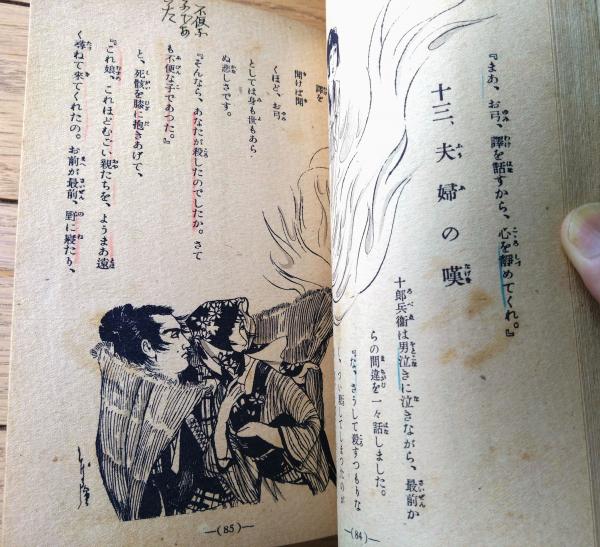 『まあ、お弓、譯を話すから、心を靜めてくれ。』
十三、夫婦の嘆
十郎兵衞は男泣きに泣きながら、最前か
らの間違を一々話しました。
さうして殺すつもりな
―(84)―
譯を
聞けば聞
くほど、お弓
としては身も世もあら
ぬ悲しさです。
『そんなら、あなたが殺したのでしたか。さて
も不便な子であつた。』
と、死骸を膝に抱きあげて、
『これ娘、これほどむごい親たちを、ようまあ遠
く尋ねて來てくれたの。お前が最前、野に寢たり、
―(85)―